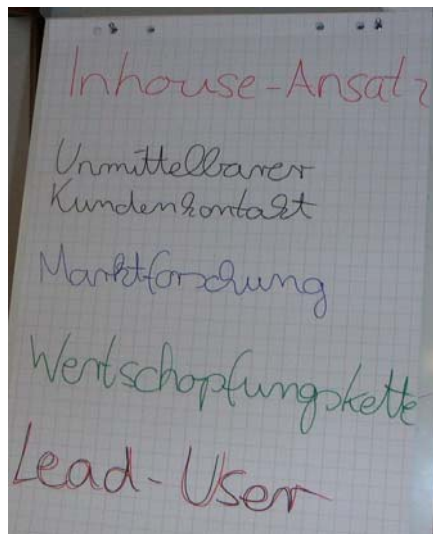 Inhouse-Ansatz
Unmittelbarer
Kundenkontakt
Marktforschung
Wertschopfungskette
Lead-User